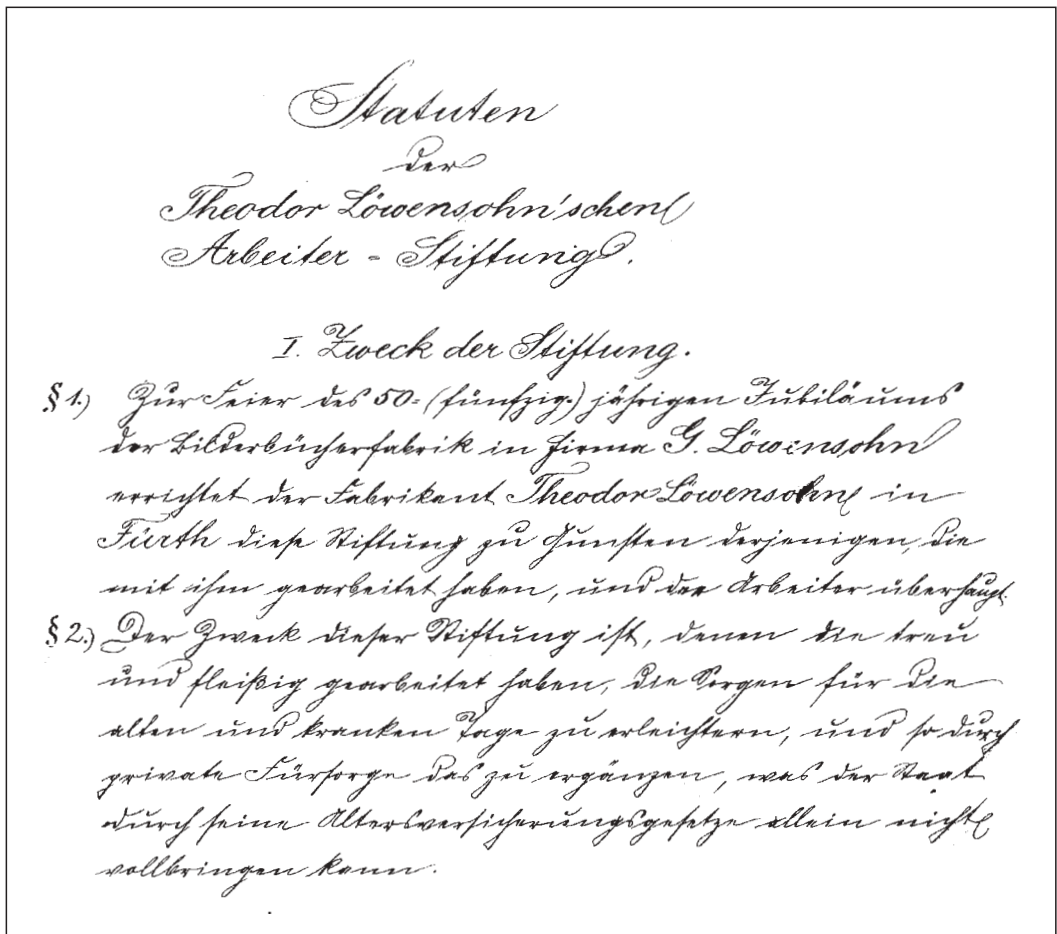 Statuten
der
Theodor Löwensohn'schen
Arbeiter - Stiftung.
I. Zweck der Stiftung.
§ 1.) Zur Feier des 50- (fünfzig-) jährigen Jubiläums
der Bilderbücherfabrik in Firma G. Löwensohn
errichtet der Fabrikant Theodor Löwensohn in
Fürth diese Stiftung zu Gunsten derjenigen, die
mit ihm gearbeitet haben, und der Arbeiter überhaupt.
§ 2.) Der Zweck dieser Stiftung ist, denen die treu
und fleißig gearbeitet haben, die Sorgen für die
alten und kranken Tage zu erleichtern, und so durch
private Fürsorge das zu ergänzen, was der Staat
durch seine Altersversicherungsgesetze allein nicht
vollbringen kann.